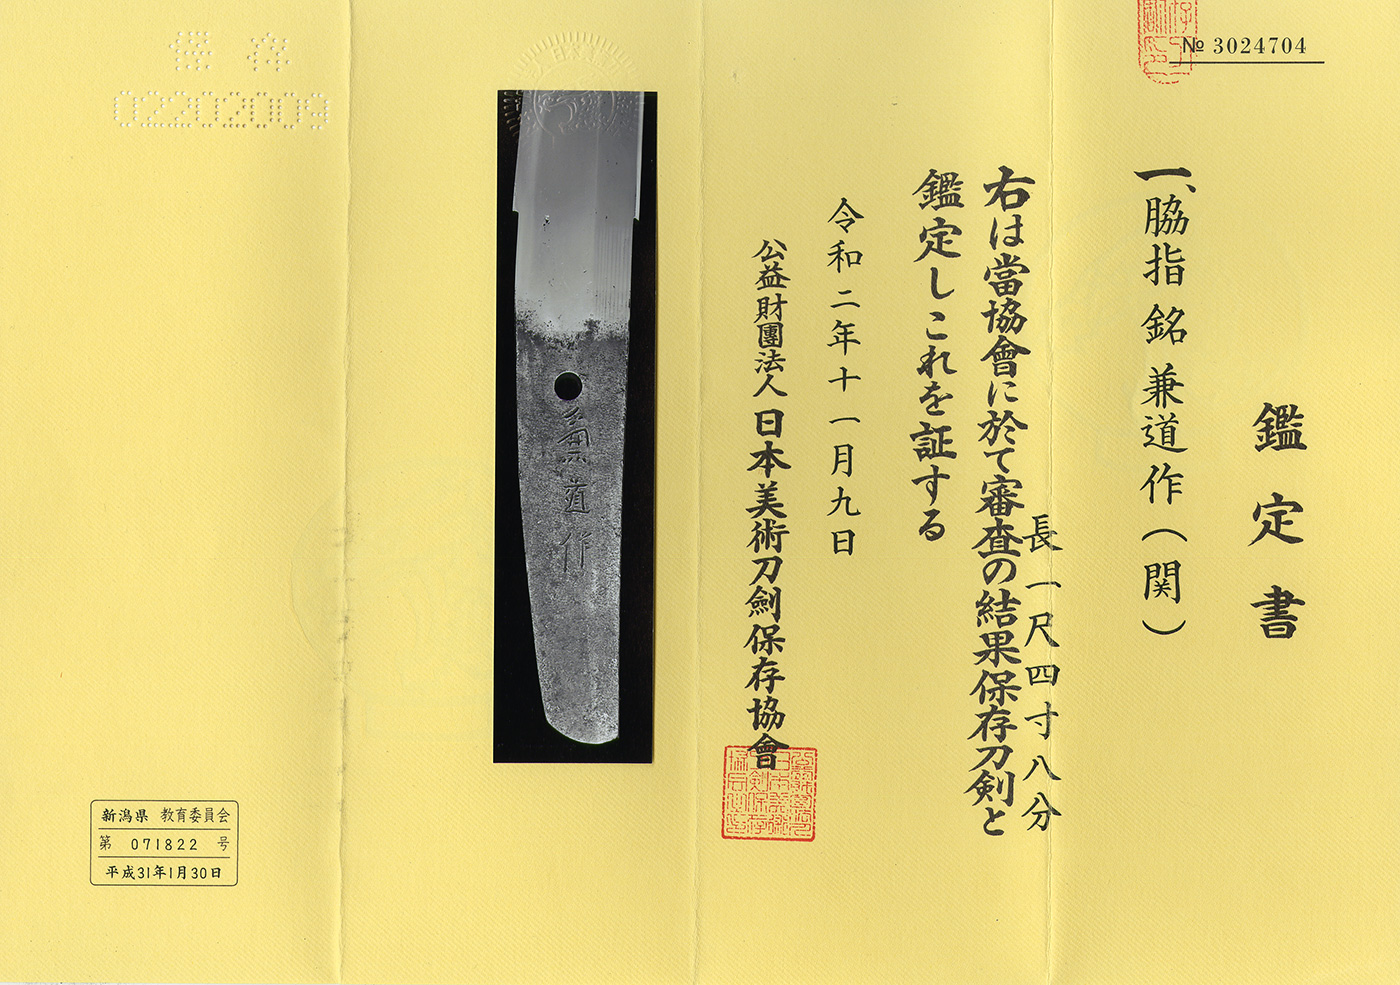 № 3024704
鑑定書
一、脇指 銘 兼道作(関)
長一尺四寸八分
右は當協會に於て審査の結果保存刀剣と
鑑定しこれを証する
令和二年十一月九日
公益財團法人 日本美術刀劍保存協會
兼道作
保存
02202009
新潟県 教育委員会
第 071822 号
平成31年1月30日